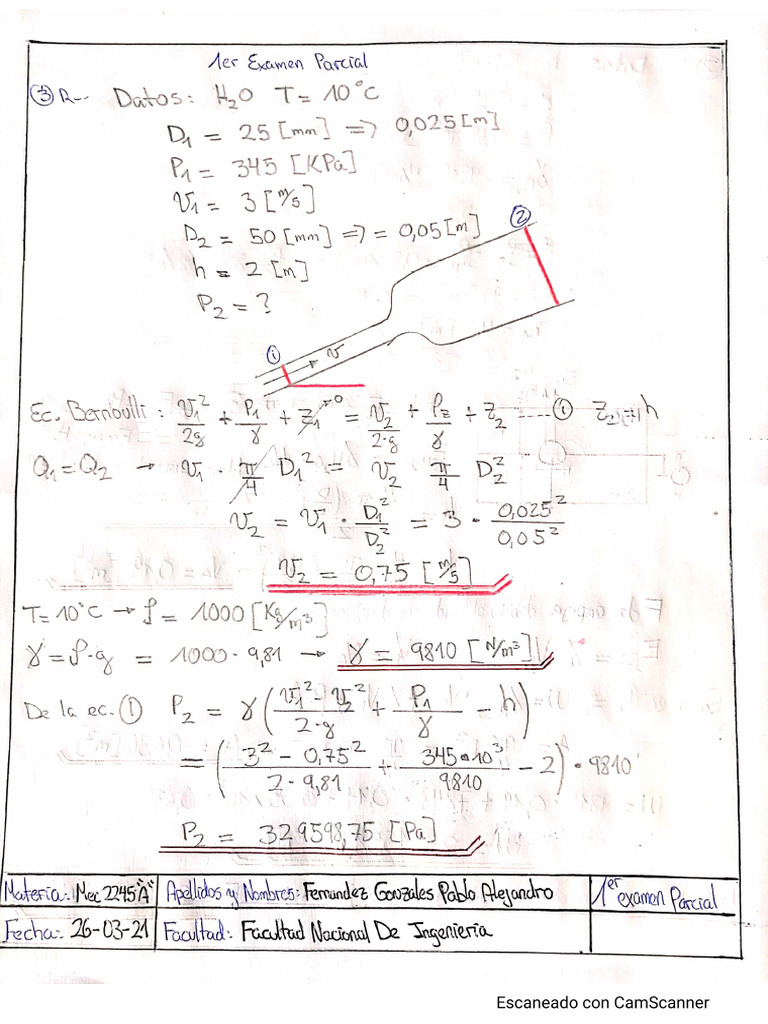 1er Examen Parcial
③ R-- Datos: H₂O T = 10°C
D₁ = 25 [mm] => 0,025 [m]
P₁ = 345 [KPa]
V₁ = 3 [m/s]
D₂ = 50 [mm] => = 0,05 [m]
h = 2 [m]
P₂ = ?
②
① v
Ec. Bernoulli: V₁²/2g + P₁/γ + Z₁→0 = V₂/2·g + P₂/γ + Z₂ ---- ① Z₂ = h
Q₁ = Q₂ → V₁ · π/4 D₁² = V₂ π/4 D₂²
V₂ = V₁ · D₁²/D₂² = 3 · 0,025²/0,05²
V₂ = 0,75 [m/s]
T = 10°C → ρ = 1000 [Kg/m³]
γ = ρ·g = 1000 · 9,81 → γ = 9810 [N/m³]
De la ec. ① P₂ = γ (V₁² - V₂²/2·g + P₁/γ - h)
= (3² - 0,75²/2 · 9,81 + 345·10³/9810 - 2) · 9810
P₂ = 329598,75 [Pa]
Materia: Mec 2245 "A" Apellidos y Nombres: Fernandez Gonzales Pablo Alejandro 1er examen Parcial
Fecha: 26-03-21 Facultad: Facultad Nacional De Ingenieria
Escaneado con CamScanner